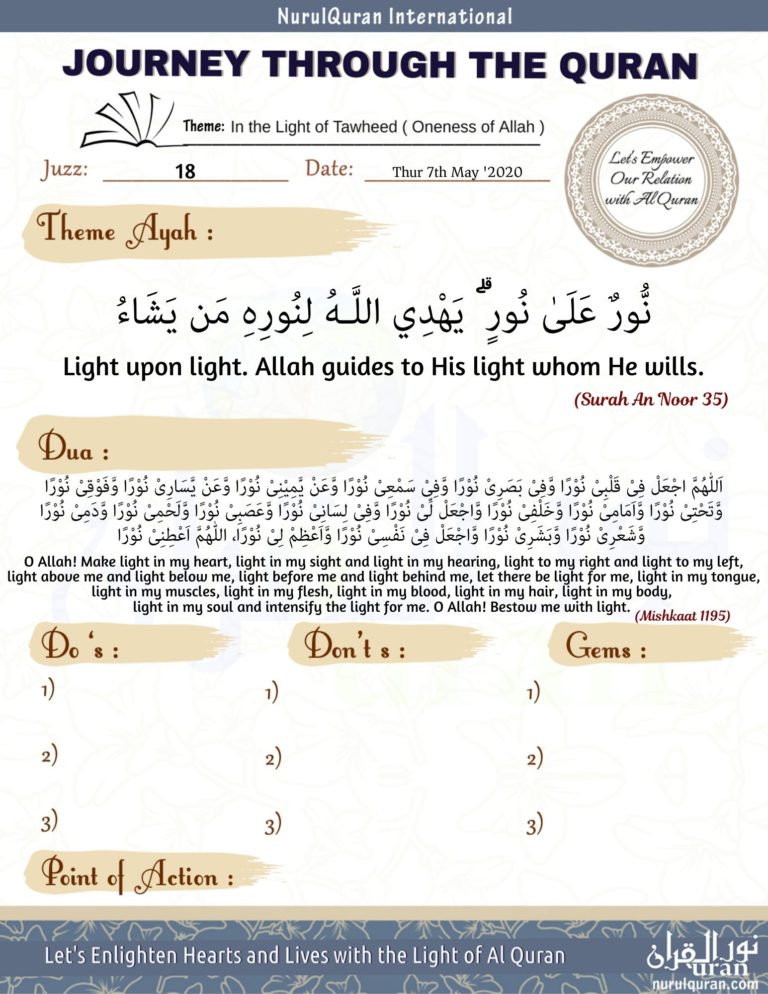 NurulQuran International
JOURNEY THROUGH THE QURAN
Theme: In the Light of Tawheed ( Oneness of Allah )
Juzz: 18 Date: Thur 7th May '2020
Let's Empower
Our Relation
with Al Quran
Theme Ayah :
نُّورٌ عَلَىٰ نُورٍ ۗ يَهْدِي اللَّـهُ لِنُورِهِ مَن يَشَاءُ
Light upon light. Allah guides to His light whom He wills.
(Surah An Noor 35)
Dua :
اَللّٰهُمَّ اجْعَلْ فِيْ قَلْبِيْ نُوْرًا وَّفِيْ بَصَرِيْ نُوْرًا وَّفِيْ سَمْعِيْ نُوْرًا وَّعَنْ يَّمِيْنِيْ نُوْرًا وَّعَنْ يَّسَارِيْ نُوْرًا وَّفَوْقِيْ نُوْرًا
وَّتَحْتِيْ نُوْرًا وَّاَمَامِيْ نُوْرًا وَّخَلْفِيْ نُوْرًا وَّاجْعَلْ لِّيْ نُوْرًا وَّفِيْ لِسَانِيْ نُوْرًا وَّعَصَبِيْ نُوْرًا وَّلَحْمِيْ نُوْرًا وَّدَمِيْ نُوْرًا
وَّشَعْرِيْ نُوْرًا وَّبَشَرِيْ نُوْرًا وَّاجْعَلْ فِيْ نَفْسِيْ نُوْرًا وَّاَعْظِمْ لِيْ نُوْرًا، اَللّٰهُمَّ اَعْطِنِيْ نُوْرًا
O Allah! Make light in my heart, light in my sight and light in my hearing, light to my right and light to my left,
light above me and light below me, light before me and light behind me, let there be light for me, light in my tongue,
light in my muscles, light in my flesh, light in my blood, light in my hair, light in my body,
light in my soul and intensify the light for me. O Allah! Bestow me with light. (Mishkaat 1195)
Do 's : Don't s : Gems :
1) 1) 1)
2) 2) 2)
3) 3) 3)
Point of Action :
Let's Enlighten Hearts and Lives with the Light of Al Quran
نور القرآن
uran
nurulquran.com